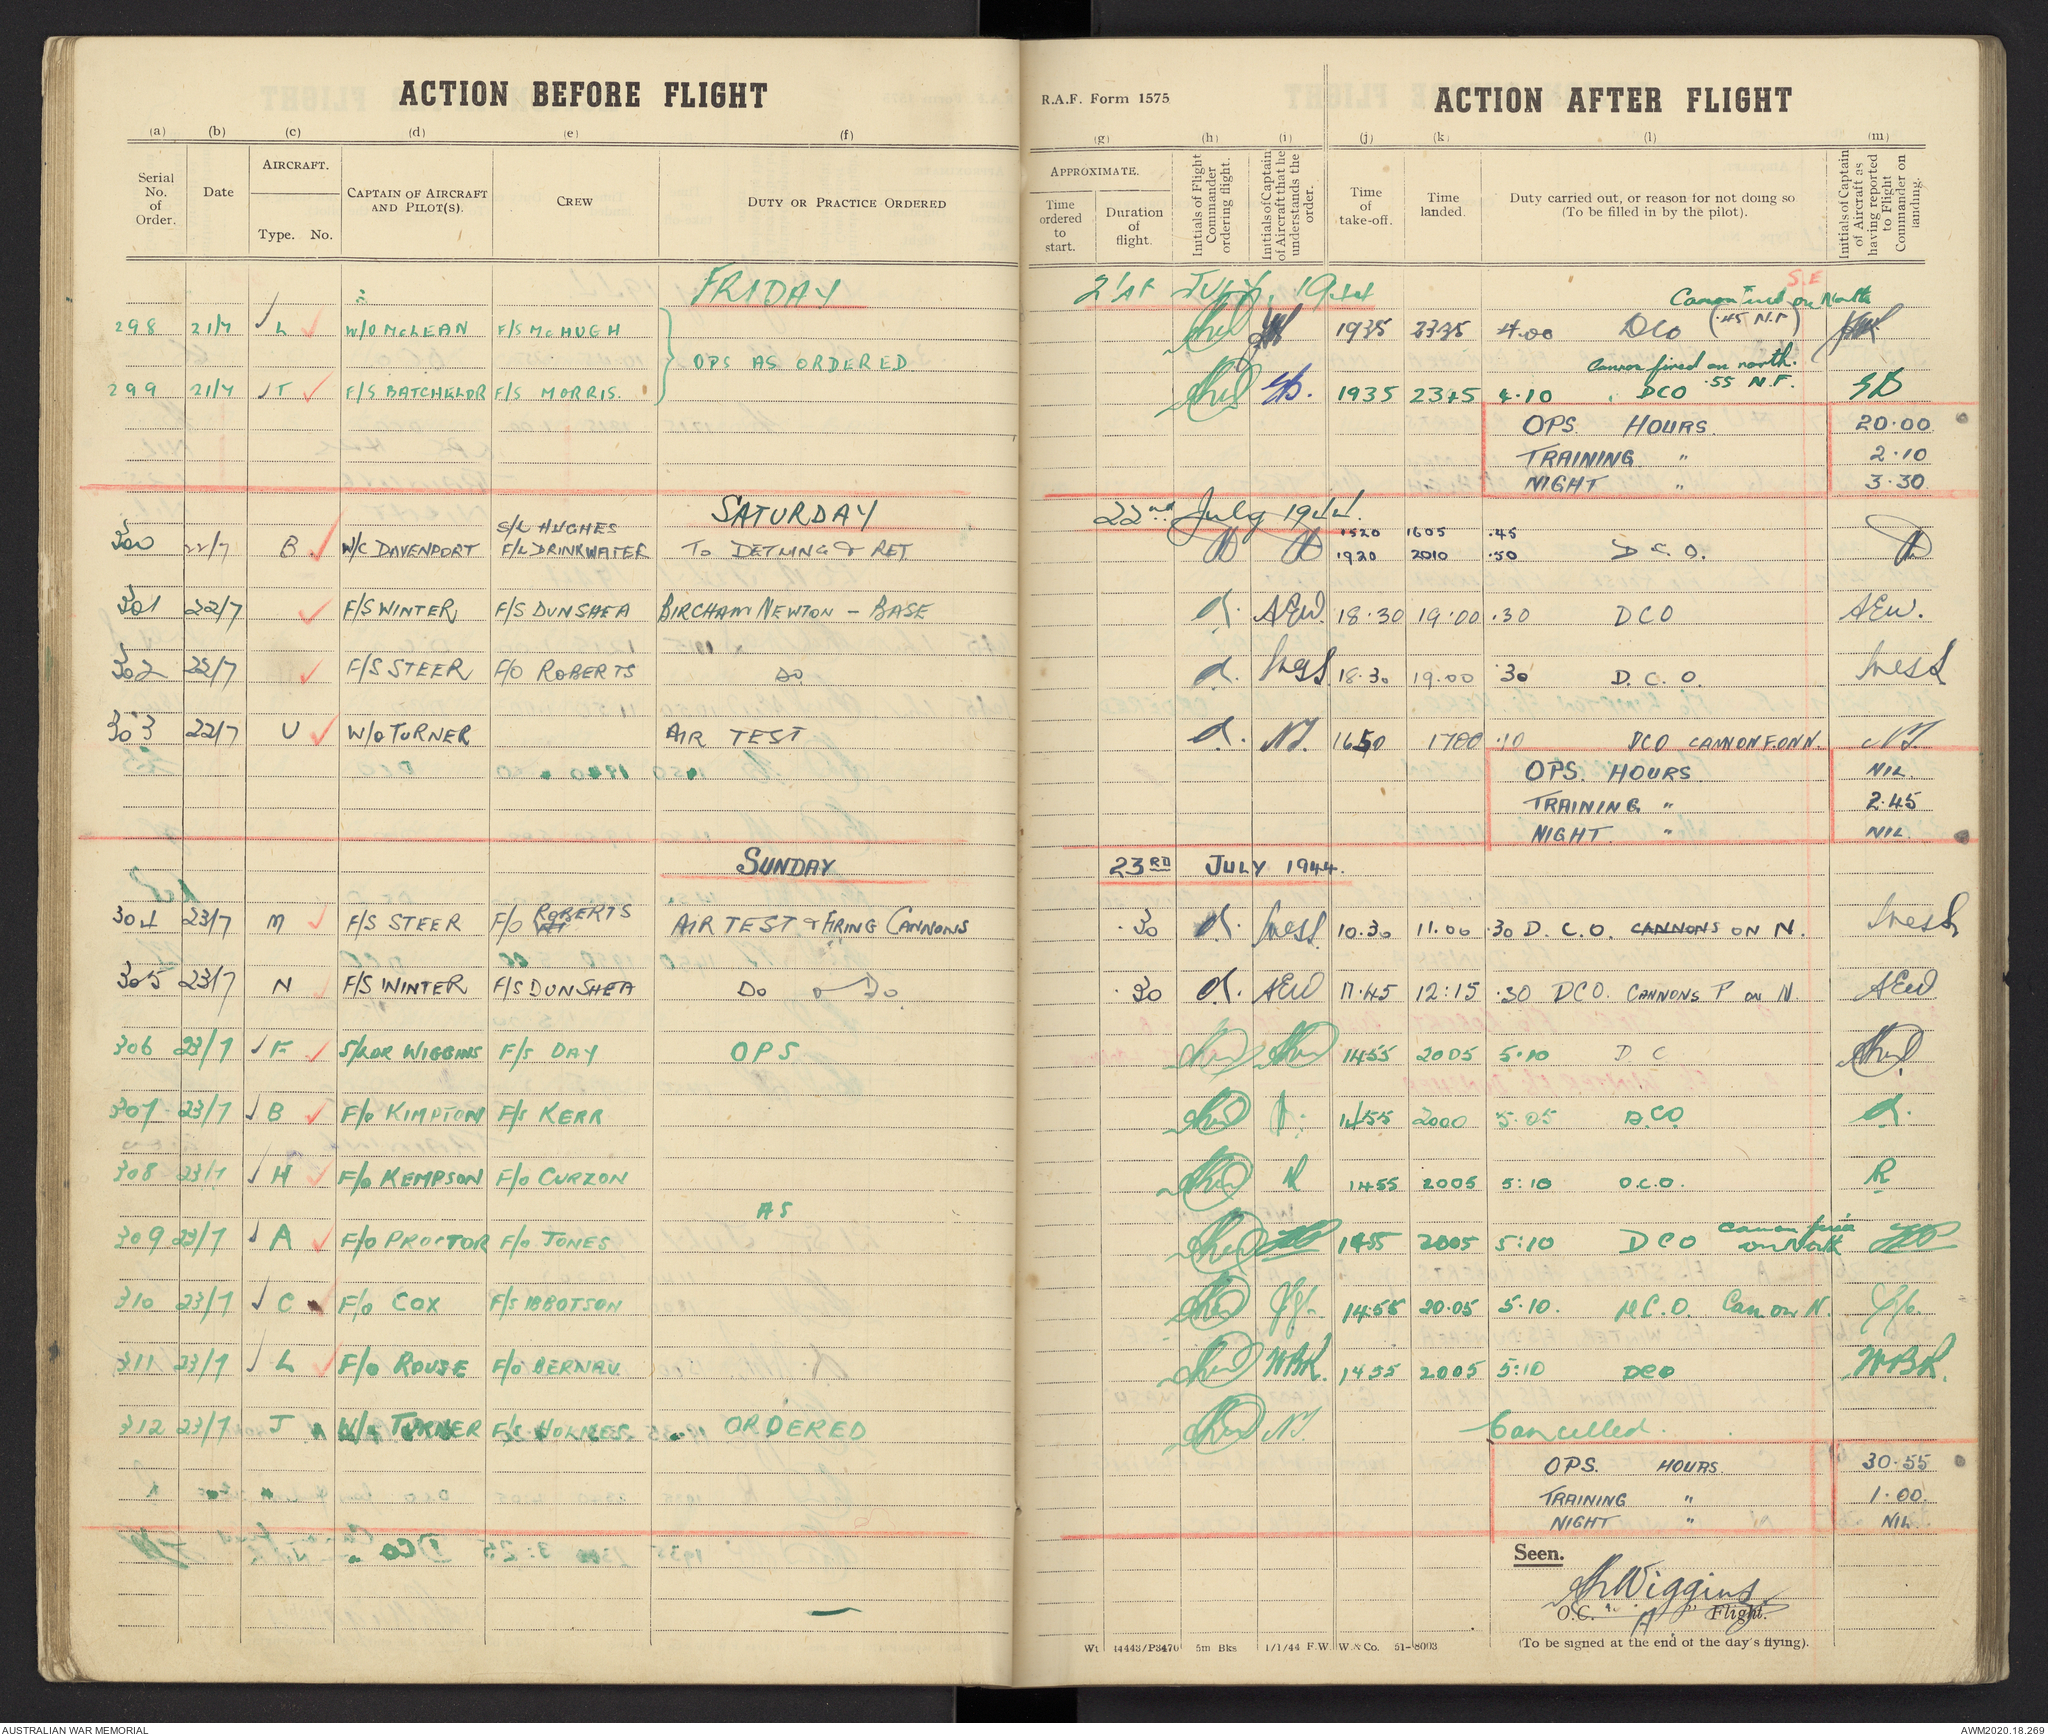 ACTION BEFORE FLIGHT
R.A.F. Form 1575 ACTION AFTER FLIGHT
(a) (b) (c) (d) (e) (f) (g) (h) (i) (j) (k) (l) (m)
Serial No. of Order.
Date
AIRCRAFT.
Type. No.
CAPTAIN OF AIRCRAFT AND PILOT(S).
CREW
DUTY OR PRACTICE ORDERED
APPROXIMATE.
Time ordered to start.
Duration of flight.
Initials of Flight Commander ordering flight.
Initials of Captain of Aircraft that he understands the order.
Time of take-off.
Time landed.
Duty carried out, or reason for not doing so (To be filled in by the pilot).
Initials of Captain of Aircraft as having reported to Flight Commander on landing.
FRIDAY 21st JULY, 1944 S.E
Canon Fired on North
298 21/7 L W/O McLEAN F/S McHUGH 1935 2335 4.00 DCO (.45 N.F)
OPS AS ORDERED
Cannon fired on north.
299 21/7 T F/S BATCHELOR F/S MORRIS. 1935 2345 4.10 DCO .55 N.F.
OPS. HOURS. 20.00
TRAINING " 2.10
NIGHT " 3.30
SATURDAY 22nd July 1944.
S/L HUGHES 1520 1605 .45
300 22/7 B W/C DAVENPORT F/L DRINKWATER TO DETLING & RET 1920 2010 .50 D.C.O.
301 22/7 F/S WINTER F/S DUNSHEA BIRCHAM NEWTON - BASE AEW. 18.30 19.00 .30 DCO AEW.
302 22/7 F/S STEER F/O ROBERTS DO 18.30 19.00 .30 D.C.O.
303 22/7 U W/O TURNER AIR TEST NT. 1650 1700 .10 DCO CANNON F. ON N. NT
OPS. HOURS NIL.
TRAINING " 2.45
NIGHT. " NIL.
SUNDAY 23RD JULY 1944.
304 23/7 M F/S STEER F/O ROBERTS AIR TEST & FIRING CANNONS .30 10.30 11.00 .30 D.C.O. CANNONS ON N.
305 23/7 N F/S WINTER F/S DUNSHEA DO DO .30 AEW 11.45 12.15 .30 DCO. CANNONS F ON N. AEW
306 23/7 F S/LDR WIGGINS F/S DAY OPS 1455 2005 5.10 D C
307 23/7 B F/O KIMPTON F/S KERR 1455 2000 5.05 D.C.O.
308 23/7 H F/O KEMPSON F/O CURZON K 1455 2005 5:10 D.C.O. K
AS
309 23/7 A F/O PROCTOR F/O JONES 1455 2005 5:10 DCO canon fired on North
310 23/7 C F/O COX F/S IBBOTSON 14.55 20.05 5.10. D.C.O. Can on N.
311 23/7 L F/O ROUSE F/O BERNAU. WBR. 1455 2005 5:10 DCO WBR.
312 23/7 J W/O TURNER F/S HOLMES. ORDERED NT. Cancelled.
OPS. HOURS. 30.55
TRAINING " 1.00
NIGHT " NIL
Seen.
Wiggins
O.C. "A" Flight.
Wt 14443/P3470 5m Bks 1/1/44 F.W. W. & Co. 51-8003 (To be signed at the end of the day's flying).
AUSTRALIAN WAR MEMORIAL AWM2020.18.269